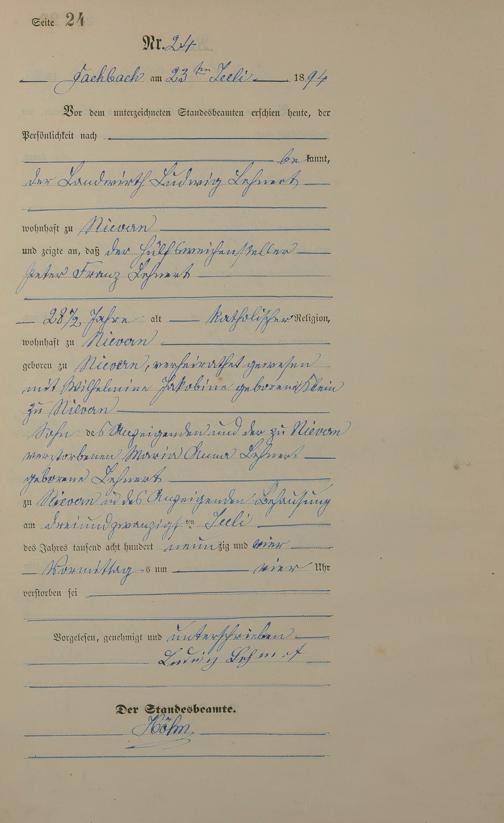 Seite 24
Nr. 24
Fachbach am 23ten Juli 1894
Vor dem unterzeichneten Standesbeamten erschien heute, der
Persönlichkeit nach
be kannt,
der Landwirth Ludwig Lehnert
wohnhaft zu Nievern
und zeigte an, daß der Hülfsweichensteller
Peter Franz Lehnert
28 1/2 Jahre alt katholischer Religion,
wohnhaft zu Nievern
geboren zu Nievern, verheirathet gewesen
mit Wilhelmine Jakobine geborene Klein
zu Nievern
Sohn des Anzeigenden und der zu Nievern
verstorbenen Maria Anna Lehnert
geborene Lehnert
zu Nievern in des Anzeigenden Behausung
am dreiundzwanzigsten Juli
des Jahres tausend acht hundert neunzig und vier
Vormittags um vier Uhr
verstorben sei
Vorgelesen, genehmigt und unterschrieben
Ludwig Lehnert
Der Standesbeamte.